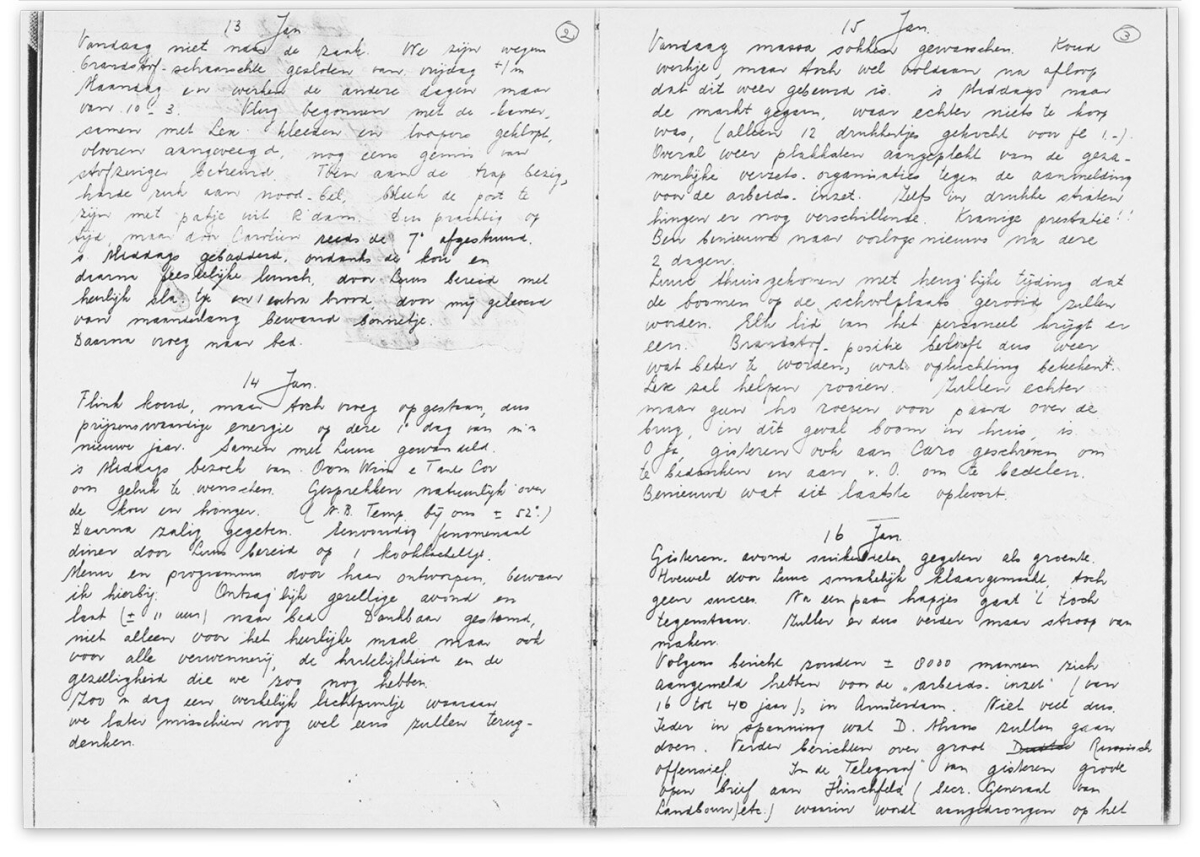 13 Jan
2
Vandaag niet naar de zaak. We zijn wegens
brandstof-schaarschte gesloten van vrijdag t/m
Maandag en werken de andere dagen maar
van 10 - 3. Vlug begonnen met de kamer,
samen met Lex. Kleeden en loopers geklopt,
vloeren aangeveegd, nog eens gemis van
stofzuiger betreurd. Toen aan de trap bezig,
harde ruk aan nood-bel, bleek de post te
zijn met pakje uit R'dam. Dus prachtig op
tijd, maar door Carolien reeds de 7e afgestuurd.
's Middags gebadderd, ondanks de kou en
daarna feestelijke lunch, door Luus bereid met
heerlijk sla'tje en 1 extra brood door mij geleverd
van maandenlang bewaard bonnetje.
Daarna vroeg naar bed.
14 Jan.
Flink koud, maar toch vroeg opgestaan, dus
prijzenswaardige energie op deze 1e dag van m'n
nieuwe jaar. Samen met Luuc gewandeld.
's Middags bezoek van Oom Wim e Tante Cor
om geluk te wenschen. Gesprekken natuurlijk over
de kou en honger. (N.B. Temp. bij ons ± 52°.)
Daarna zalig gegeten. Eenvoudig fenomenaal
diner door Luus bereid op 1 kookkacheltje.
Menu en programma door haar ontworpen, bewaar
ik hierbij. Ontzag'lijk gezellige avond en
laat (± 11 uur) naar bed. Dankbaar gestemd,
niet alleen voor het heerlijke maal maar ook
voor alle verwennerij, de hartelijkheid en de
gezelligheid die we zoo nog hebben.
Zoo 'n dag een werkelijk lichtpuntje waaraan
we later misschien nog wel eens zullen terug-
denken.
15 Jan.
3
Vandaag massa sokken gewasschen. Koud
werkje, maar toch wel voldaan, na afloop
dat dit weer gebeurd is. 's Middags naar
de markt gegaan, waar echter niets te koop
was, (alleen 12 drukkertjes gekocht voor fe 1.-).
Overal weer plakkaten aangeplakt van de geza-
menlijke verzets-organisaties tegen de aanmelding
voor de arbeids-inzet. Zelfs in drukke straten
hingen er nog verschillende. Kranige prestatie!!
Ben benieuwd naar oorlogsnieuws na deze
2 dagen.
Luuc thuisgekomen met heug'lijke tijding dat
de boomen op de schoolplaats gerooid zullen
worden. Elk lid van het personeel krijgt er
een. Brandstof-positie belooft dus weer
wat beter te worden, wat opluchting beteekent.
Lex zal helpen rooien. Zullen echter
maar geen ho roepen voor paard over de
brug, in dit geval boom in huis, is.
O ja, gisteren ook aan Caro geschreven om
te bedanken en aan v. O. om te bedelen.
Benieuwd wat dit laatste oplevert.
16 Jan.
Gisteren-avond suikerbieten gegeten als groente.
Hoewel door Luuc smakelijk klaargemaakt, toch
geen succes. Na een paar hapjes gaat 't toch
tegenstaan. Zullen er dus verder maar stroop van
maken.
Volgens bericht zouden ± 8000 mannen zich
aangemeld hebben voor de "arbeids-inzet" (van
16 tot 40 jaar), in Amsterdam. Niet veel dus.
Ieder in spanning wat D. thans zullen gaan
doen. Verder berichten over groot Russisch
offensief. In de "Telegraaf" van gisteren groote
open brief aan Hirschfeld (Secr. Generaal van
Landbouw etc.) waarin wordt aangedrongen op het